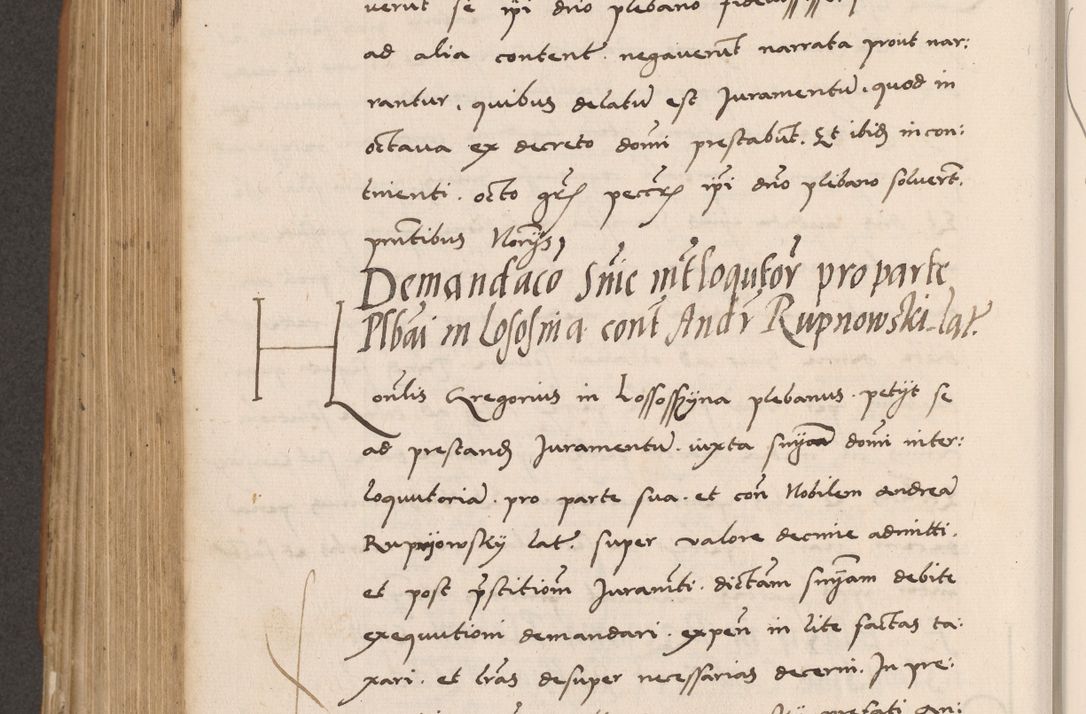 verūt se ip̄i dn̄o plebano
ad alia content. negaverūt narrata prout nar:
rantur, quibus delatū est Juramentū, quod in
octava ex decreto domi prestabūt. Et ibid in con:
tinenti. octo gr̄ pecc̄r ip̄i dn̄o plebano solverūt.
pn̄tibus Nōrijs
Demandacō Sn̄ie int̄loqutōr pro parte
Plbāi in Lososina cont̄ Andr̄ Rupnowski lat.
Hon̄lis Gregorius in Lossossyna plebanus. petyt se
ad prestand Juramentū. iuxta sn̄yam domi inter:
loquutoriā. pro parte sua. et con̄ Nobilem andreā
Rupnyowsky lat. super valore decime admitti.
et post pr̄stitiōm Juramn̄ti. dictam sn̄yam debite
exequutioni demandari. expen̄ in lite factas ta:
xari. et lrās desuper necessarias decerni. In pre: